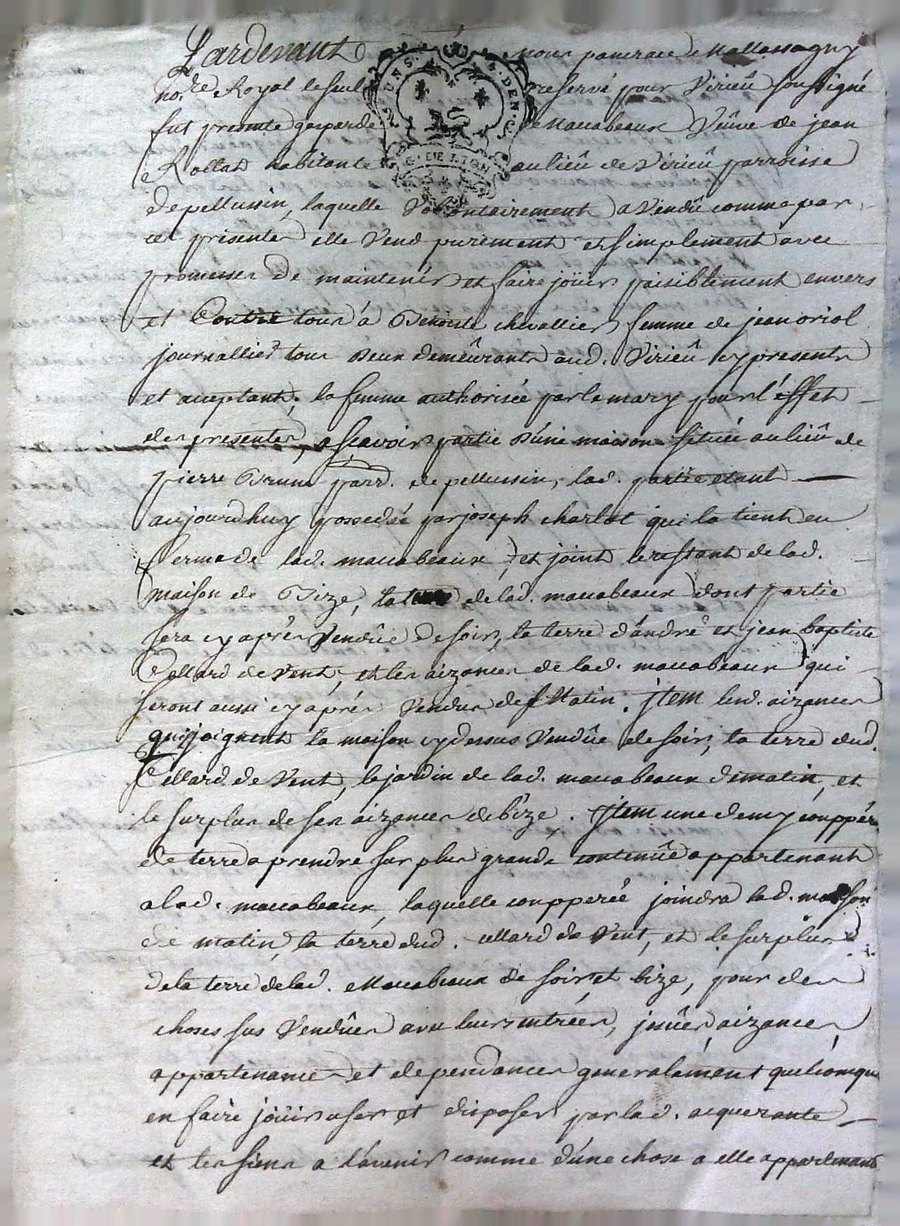 Pardevant nous pancrace de Mallassagny
no.re Royal le seul reservé pour Virieû soussigné
fut presente gasparde Maccabeaux Veûve de jean
Rollat habitante au lieû de Virieû parroisse
de pellussin, laquelle Volontairement a Vendû comme par
ces presentes elle Vend purement et simplement avec
promesses de maintenir et faire joüir paisiblement envers
et Contre tous a Benoiste chevallier femme de jean oriol
journallier tous deux demeûrants aud. Virieû cy presents
et aceptant, la femme authorisée par le mary pour l'effet
des presentes, a sçavoir partie d'une maison scituée au lieû de
pierre Brune parr. de pellussin, lad. partie etant
aujourdhuy possedée par joseph charlot qui la tient en
ferme de lad. maccabeaux, et joint le restant de lad.
maison de Bize, la de lad. maccabeaux dont partie
sera cy après Vendûe de soir, la terre d'andré et jean baptiste
Collard de Vent, et les aizances de lad. maccabeaux qui
seront aussi cy après Vendues de Matin. jtem lesd. aizances
qui joignent la maison cy dessus Vendûe de soir, la terre dud.
Collard de Vent, le jardin de lad. maccabeaux de matin, et
le surplus de ses aizances de bize. jtem une demy coupperée
de terre a prendre sur plus grande contenûe appartenant
a lad. maccabeaux, laquelle coupperée joindra lad. maison
de matin, la terre dud. collard de Vent, et le surplus
de la terre de lad. Maccabeaux de soir et bize, pour des
choses sus Vendûes avec leurs entrées, jssües aizances
appartenances et dependances generalement quelconques
en faire joüir user et disposer par lad. acquerante
et les siens a l'avenir comme d'une chose a elle appartenant
G. DE LION